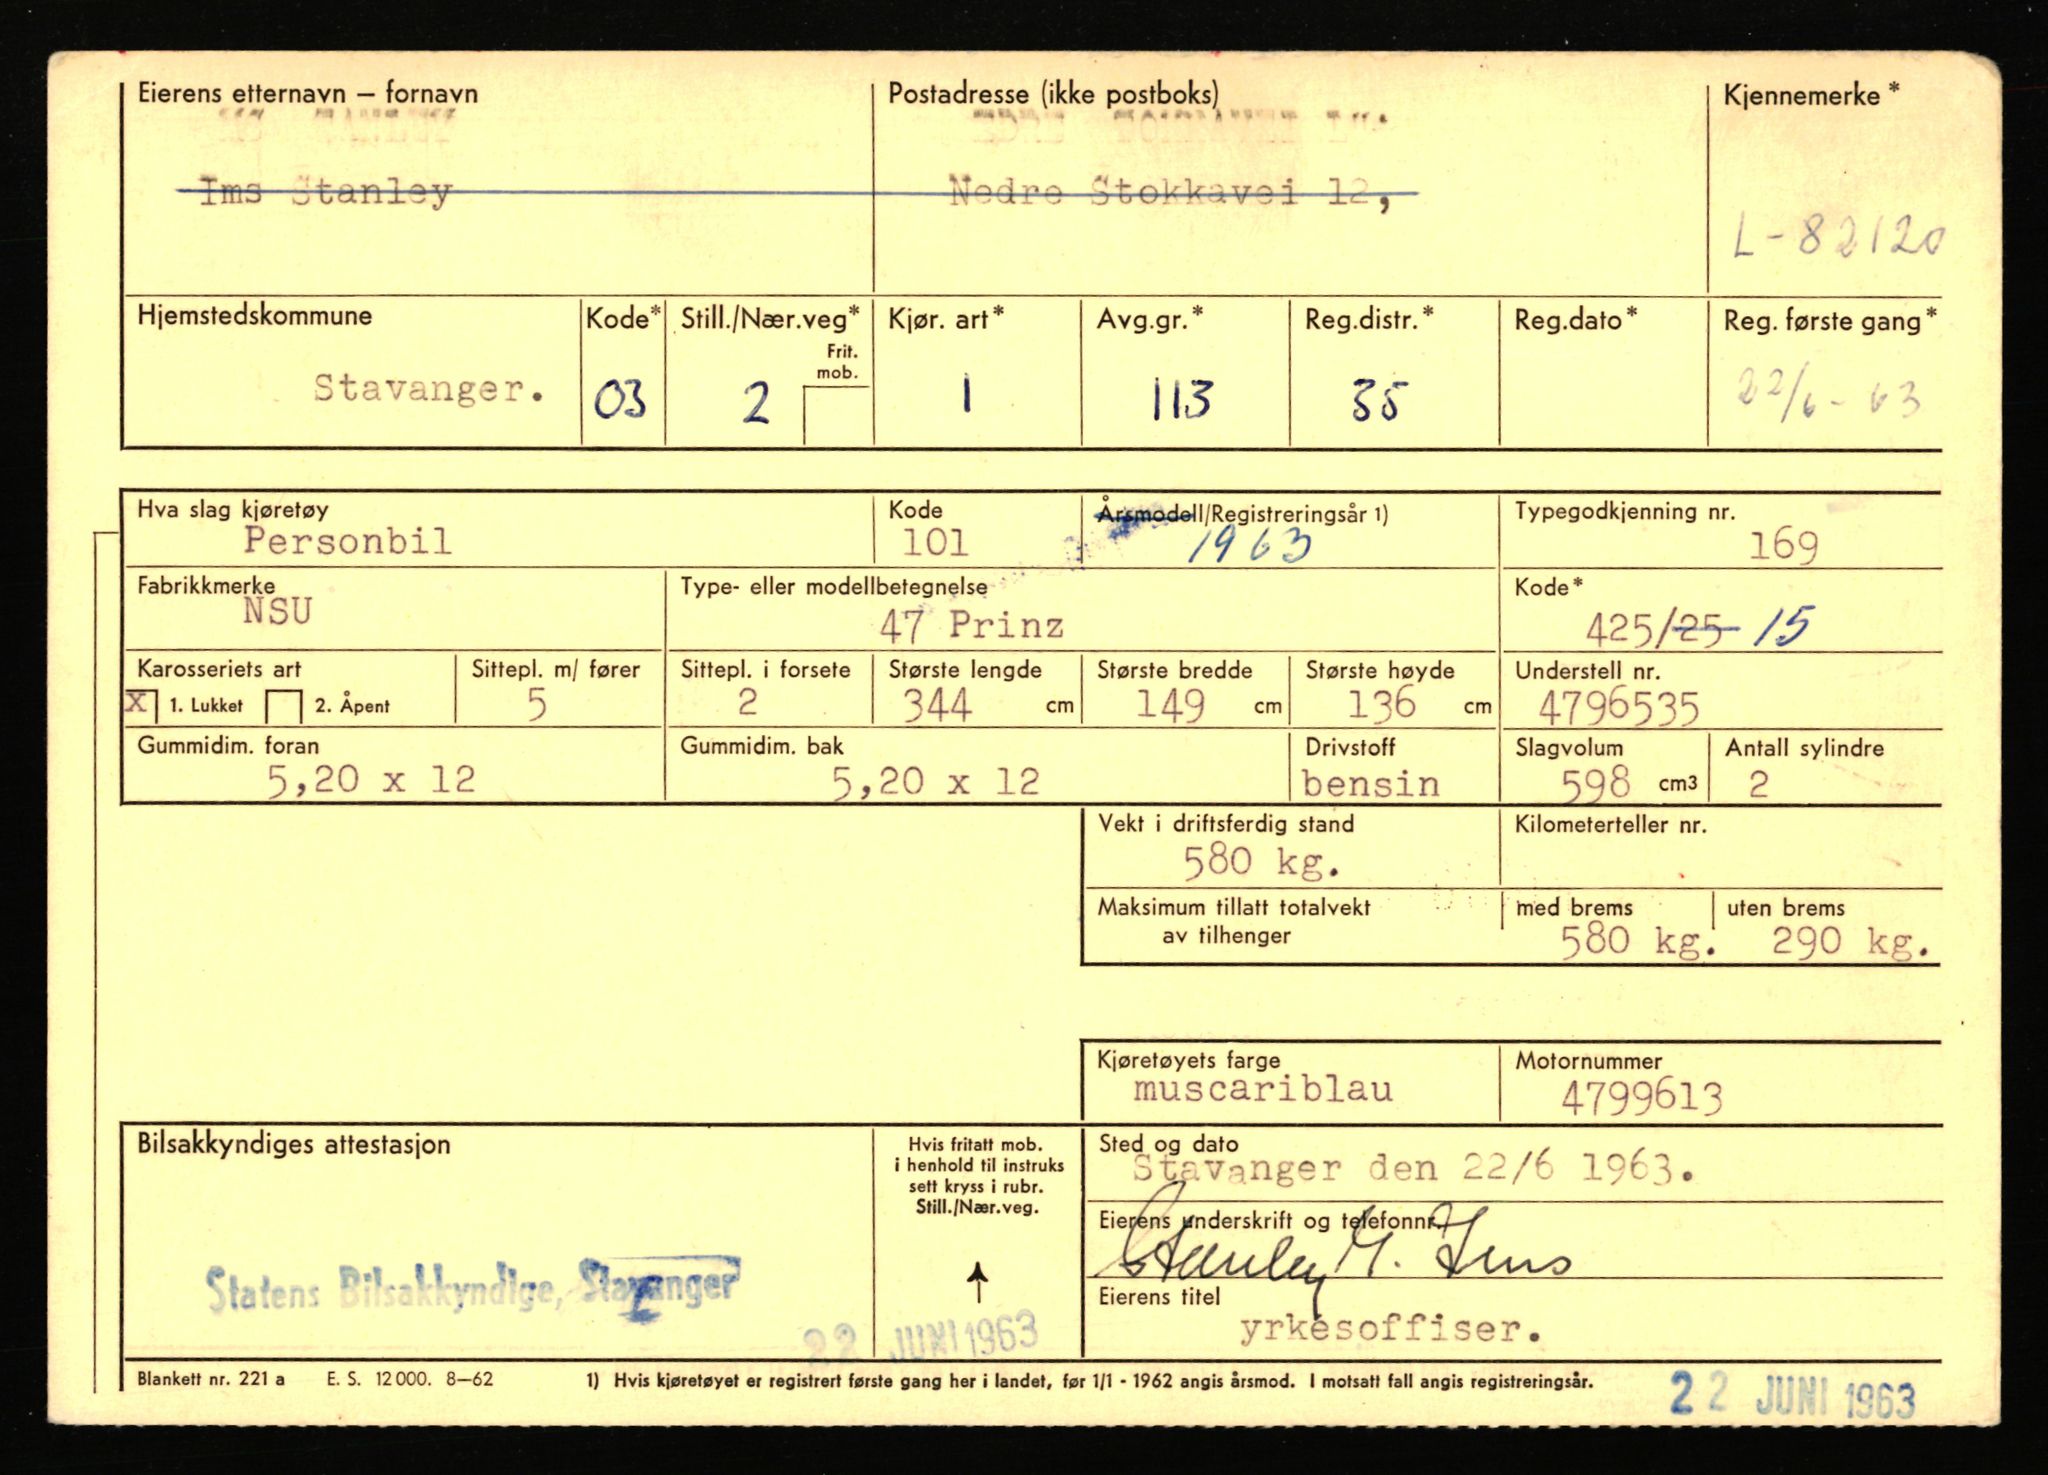 Eierens etternavn – fornavn
Postadresse (ikke postboks)
Kjennemerke*
Ims Stanley
Nedre Stokkavei 12,
L-82120
Hjemstedskommune
Kode*
Still./Nær.veg*
Kjør. art*
Avg.gr.*
Reg.distr.*
Reg.dato*
Reg. første gang*
Frit. mob.
Stavanger.
03
2
1
113
35
22/6-63
Hva slag kjøretøy
Kode
Årsmodell/Registreringsår 1)
Typegodkjenning nr.
Personbil
101
1963
169
Fabrikkmerke
Type- eller modellbetegnelse
Kode*
NSU
47 Prinz
425/25 15
Karosseriets art
Sittepl. m/ fører
Sittepl. i forsete
Største lengde
Største bredde
Største høyde
Understell nr.
X 1. Lukket 2. Åpent
5
2
344 cm
149 cm
136 cm
4796535
Gummidim. foran
Gummidim. bak
Drivstoff
Slagvolum
Antall sylindre
5,20 x 12
5,20 x 12
bensin
598 cm3
2
Vekt i driftsferdig stand
Kilometerteller nr.
580 kg.
Maksimum tillatt totalvekt av tilhenger
med brems
uten brems
580 kg.
290 kg.
Kjøretøyets farge
Motornummer
muscariblau
4799613
Bilsakkyndiges attestasjon
Hvis fritatt mob.
i henhold til instruks
sett kryss i rubr.
Still./Nær.veg.
Sted og dato
Stavanger den 22/6 1963.
Eierens underskrift og telefonnr.
Stanley M. Ims
Statens Bilsakkyndige, Stavanger
Eierens titel
yrkesoffiser.
22 JUNI 1963
Blankett nr. 221 a E. S. 12 000. 8–62
1) Hvis kjøretøyet er registrert første gang her i landet, før 1/1 - 1962 angis årsmod. I motsatt fall angis registreringsår.
22 JUNI 1963